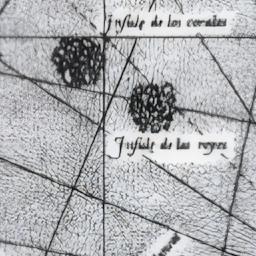 Insule de los corales
Insule de los reyes